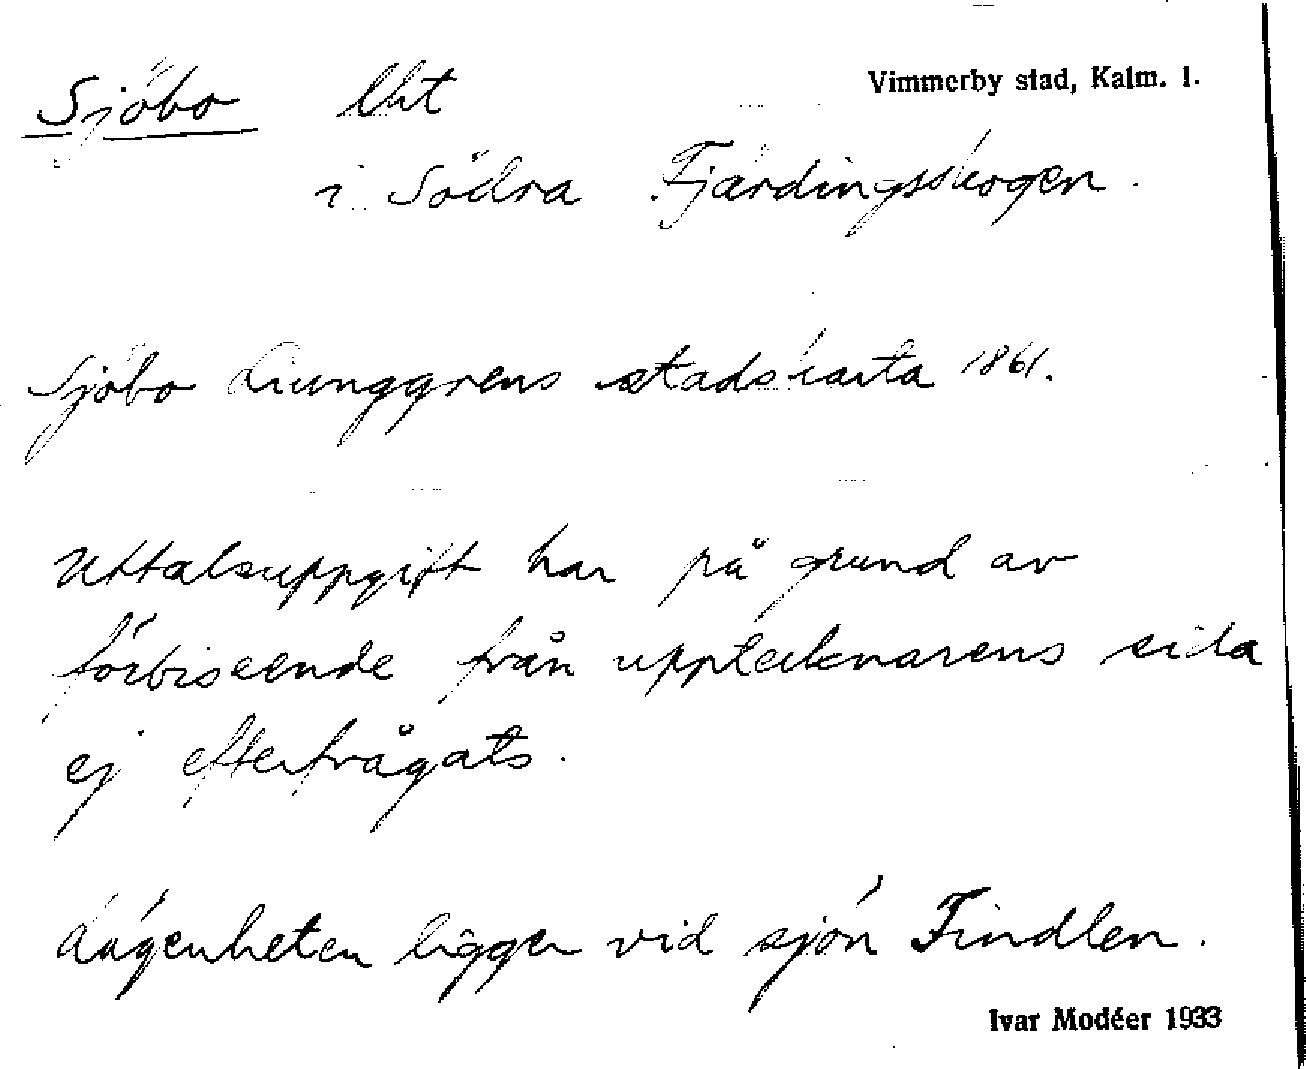 Sjöbo lht
Vimmerby stad, Kalm. l.
i Södra Fjärdingsskogen.
Sjöbo Ljunggrens stadskarta 1861.
Uttalsuppgift har på grund av
förbiseende från upptecknarens sida
ej efterfrågats.
Lägenheten ligger vid sjön Findlen.
Ivar Modéer 1933